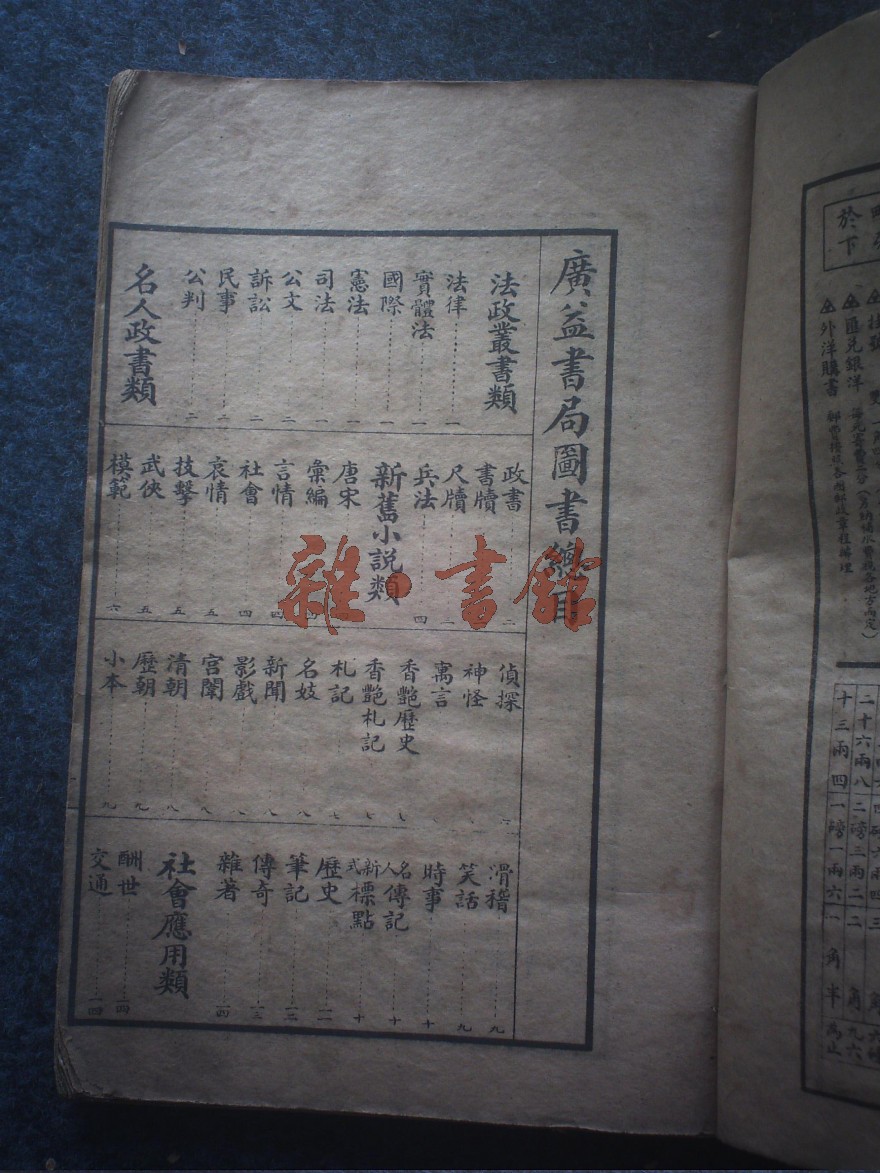 廣益書局圖書總目
法政叢書類
法律 一
實體法 一
國際 一
憲法 一
司法 一
公文 二
訴訟 二
民事 二
公判 二
名人政書類
政書 二
書牘
尺牘 二
兵法 四
新舊小說類
唐宋
彙編
言情 四
社會 四
哀情 五
技擊 五
武俠 五
模範 六
偵探
神怪
寓言
香艷歷史 七
香艷札記 七
札記 七
名妓 八
新聞 八
影戲 八
宮闈 八
清朝 八
歷朝 九
小本 九
滑稽 九
笑話 九
時事 十
名人傳記 十
新式標點 十
歷史 一一
筆記 一二
傳奇 一三
雜著 一四
社會應用類
酬世 一四
交通 一四
雜·書館
於下
匯兌銀洋
外洋購書
二十六兩八 二磅三兩二 二角 九六
十三兩四 一磅一兩六 一角半 為止